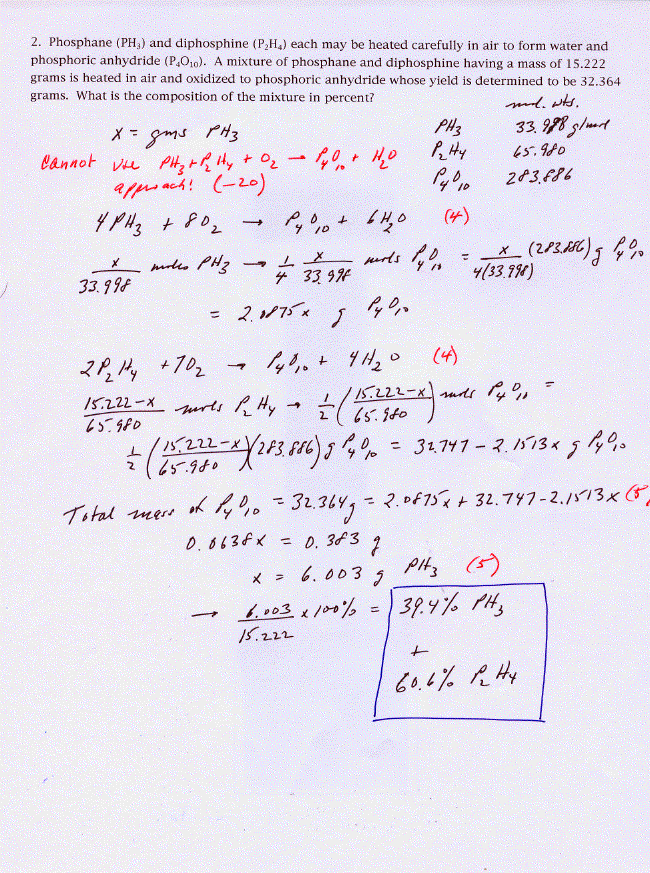 2. Phosphane (PH₃) and diphosphine (P₂H₄) each may be heated carefully in air to form water and
phosphoric anhydride (P₄O₁₀). A mixture of phosphane and diphosphine having a mass of 15.222
grams is heated in air and oxidized to phosphoric anhydride whose yield is determined to be 32.364
grams. What is the composition of the mixture in percent?
mol. wts.
X = gms PH₃
PH₃ 33.998 g/mol
Cannot use PH₃ + P₂H₄ + O₂ → P₄O₁₀ + H₂O
P₂H₄ 65.980
approach! (-20)
P₄O₁₀ 283.886
4 PH₃ + 8 O₂ → P₄O₁₀ + 6 H₂O (4)
x/33.998 moles PH₃ → 1/4 x/33.998 mols P₄O₁₀ = x/4(33.998) (283.886) g P₄O₁₀
= 2.0875 x g P₄O₁₀
2 P₂H₄ + 7 O₂ → P₄O₁₀ + 4 H₂O (4)
15.222-x/65.980 moles P₂H₄ → 1/2 (15.222-x/65.980) mols P₄O₁₀ =
1/2 (15.222-x/65.980)(283.886) g P₄O₁₀ = 32.747 - 2.1513 x g P₄O₁₀
Total mass of P₄O₁₀ = 32.364 g = 2.0875 x + 32.747 - 2.1513 x (8
0.0638 x = 0.383 g
x = 6.003 g PH₃ (5)
→ 6.003/15.222 x 100% = 39.4% PH₃
+
60.6% P₂H₄